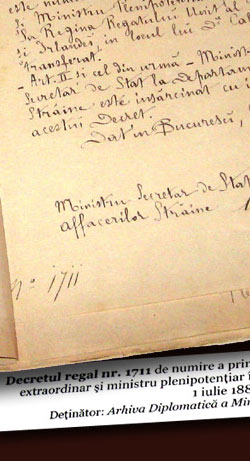 este num
și Ministru Plenipot
la Regina Regatului Unit al
și Irlandei, în locul lui Dl Ca
transferat.
- Art. II și cel din urmă - Minist
Secretar de Stat la departam
Străine este însărcinat cu
acestui Decret.
Dat în Bucuresci,
Ministru Secretar de Stat
Affacerilor Străine
No 1711
Decretul regal nr. 1711 de numire a prin
extraordinar și ministru plenipotențiar î
1 iulie 188
Deținător: Arhiva Diplomatică a Min